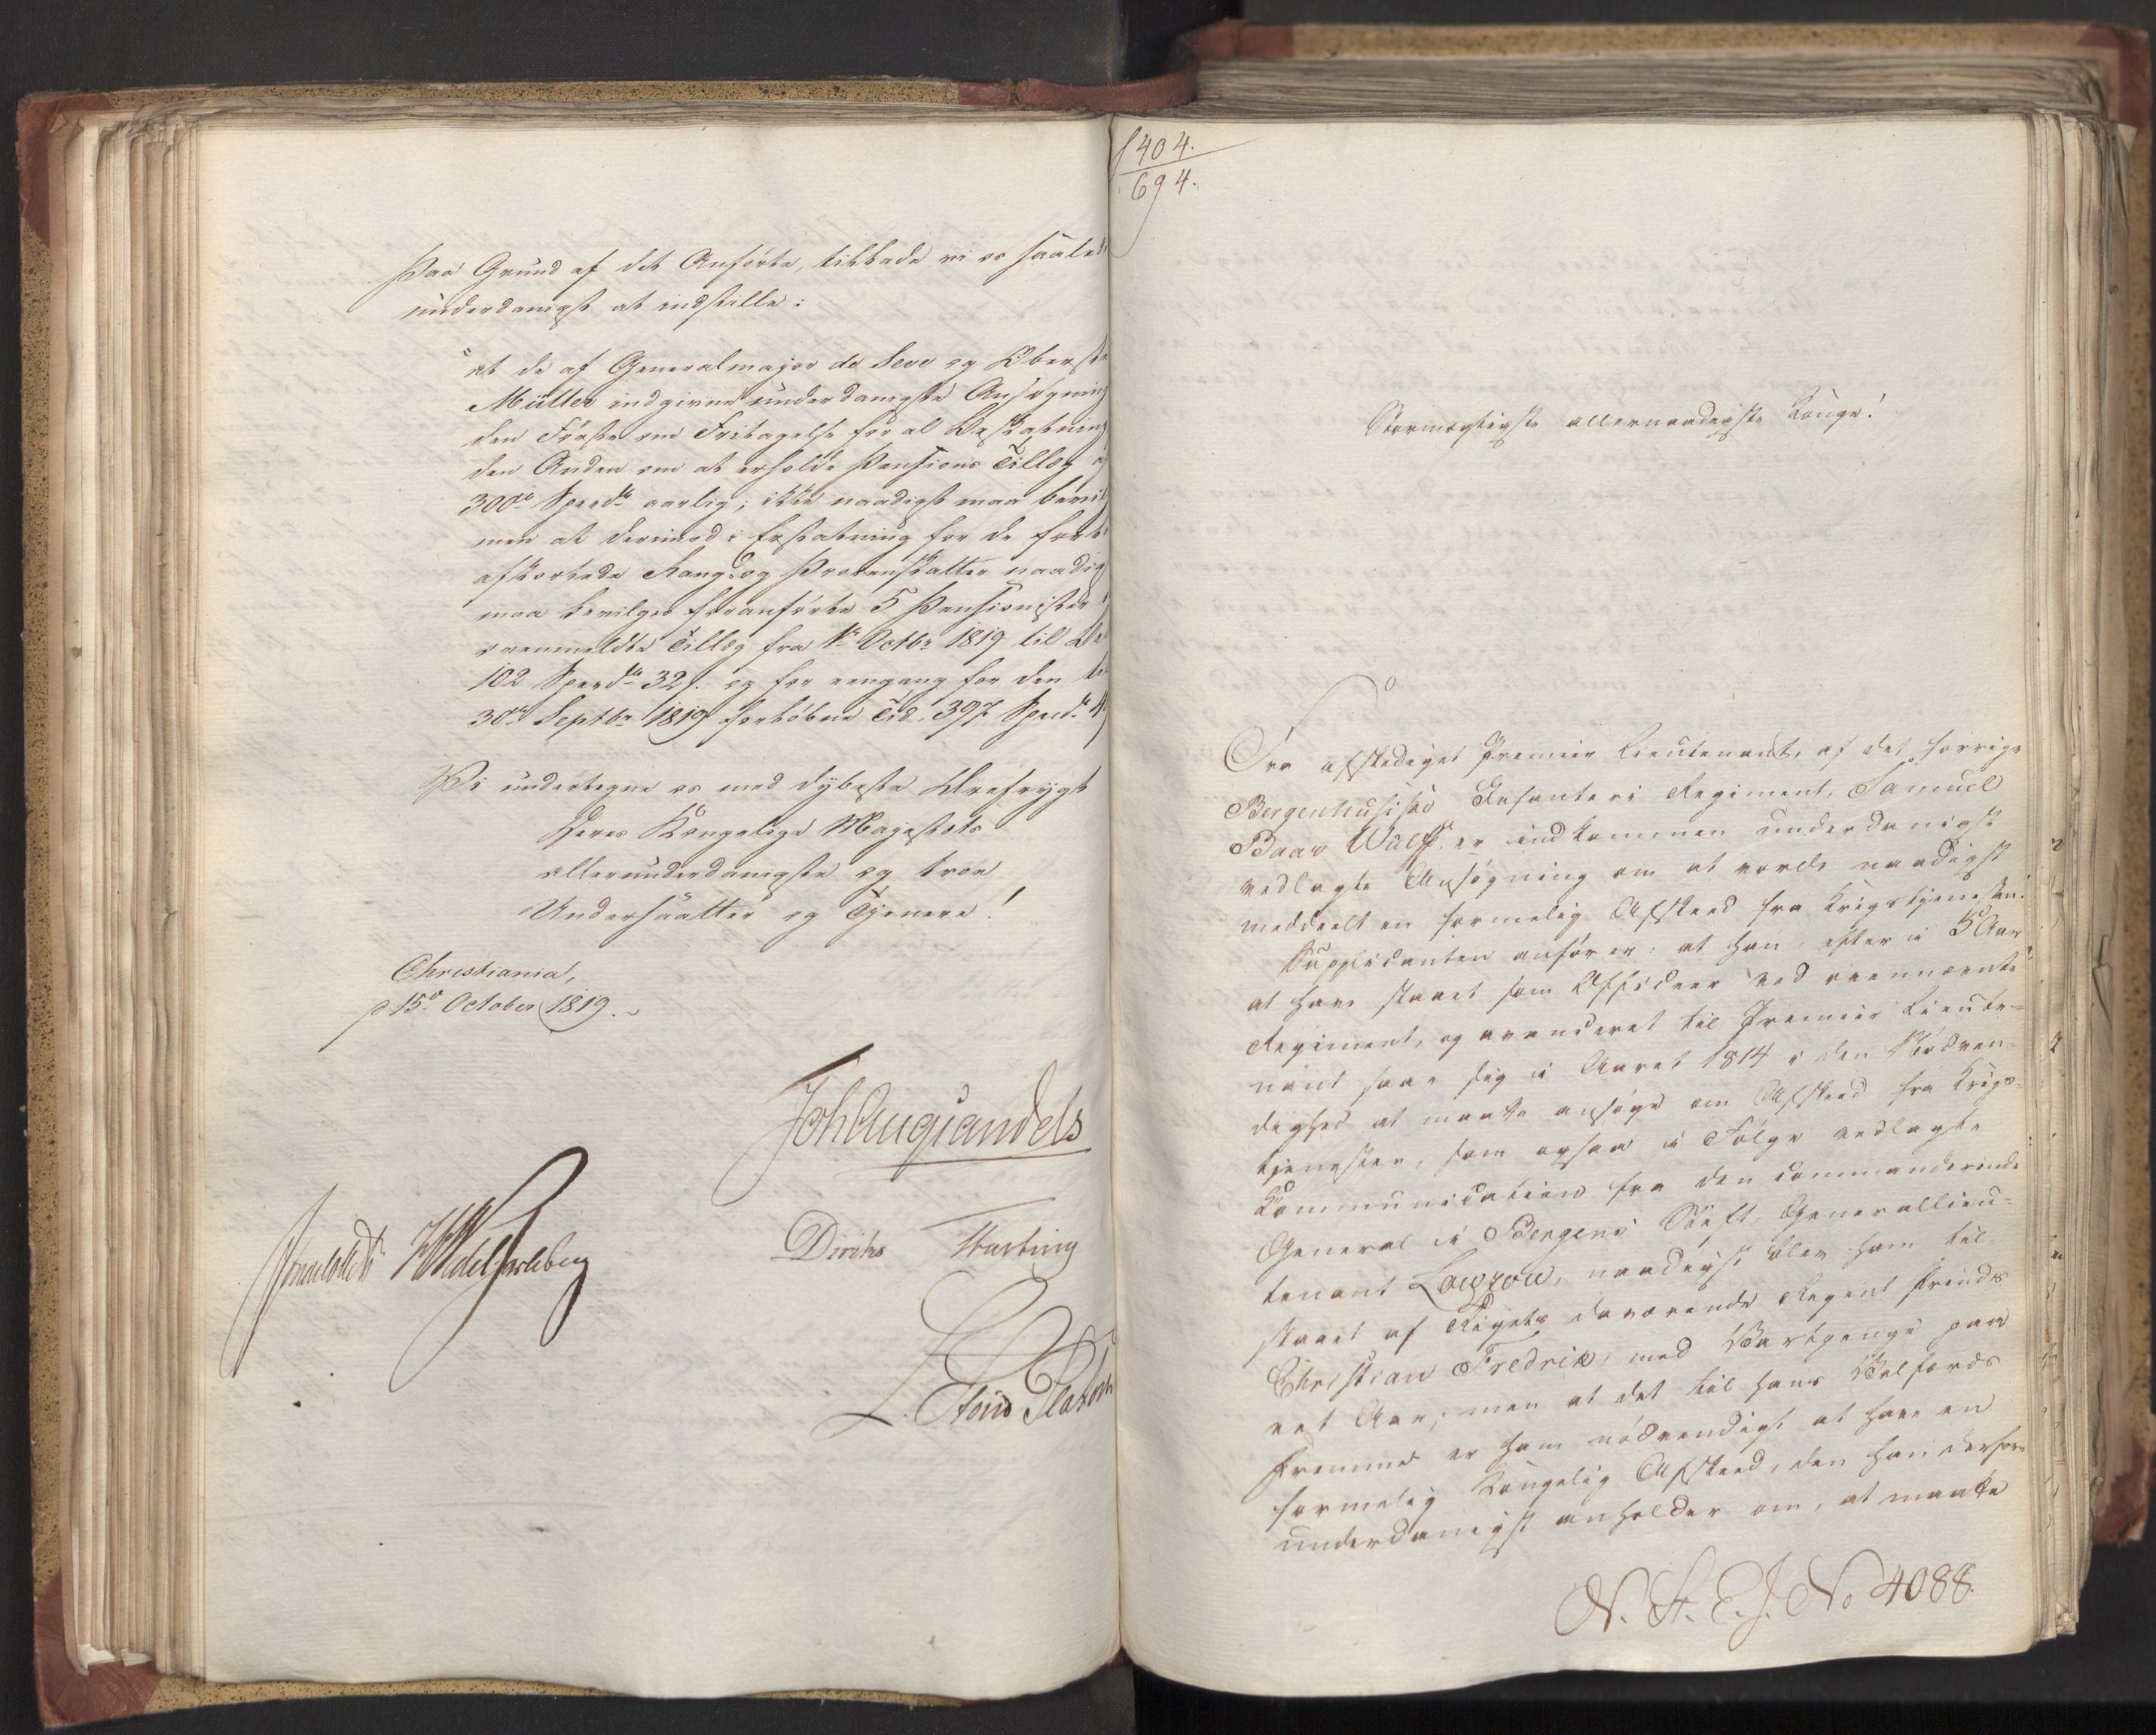 Paa Grund af det Anførte, tillade vi os saaled
underdanigst at indstille:
"at de af Generalmajor de Seve og Oberst
Müller indgivne underdanigste Ansøgning
den Første om Fritagelse for al Beskatning
den Anden om at erholde Pensions Tillæg af
300de Specd. aarlig; ikke naadigst maa bevil
men at derimod i Erstatning for de
afkortede Rang- og Procenskatter naadig
maa bevilges foranførte 5 Pensionister
ovenmeldte Tillæg fra 1e Octbr 1819 til
102 Specd. 32 s. og for eengang for den
30te Septbr 1819 forløbne Tid, 397 Specd.
Vi undertegne os med dybeste Ærefrygt
Deres Kongelige Majestæts
allerunderdanigste og troe
Undersaatter og Tjenere!
Christiania,
p 15de October 1819.
Joh Aug Sandels
Sommerhielm HWedelJarlsberg
Diriks Hasting
L. Stoud Platou
1404.
694.
Stormægtigste allernaadigste Konge!
Fra afskediget Premier Lieutenant, af det forrige
Bergenhusiske Infanteri Regiment, Samuel
Baar Wulff er indkommen underdanigst
vedlagte Ansøgning om at vorde naadigst
meddeelt en formelig Afskeed fra Krigstjenesten.
Supplicanten anfører: at han, efter i 5 Aar
at have staaet som Officeer ved ovennævnte
Regiment, og avanceret til Premier Lieute-
nant saae sig i Aaret 1814 i den Nødven-
dighed at maatte ansøge om Afskeed fra Krigs-
tjenesten, som ogsaa i Følge vedlagte
Kommunication fra den commanderende
General i Bergens Stift, Generallieu-
tenant Lowzow, naadigst blev ham til-
staaet af Rigets daværende Regent Prinds
Christian Fredrik, med Vartpenge paa
eet Aar; men at det til hans Velfærds
Fremme er ham nødvendigt at have en
formelig Kongelig Afskeed, den han derfor
underdanigst anholder om, at maatte
N. St. E. J. No 4088.